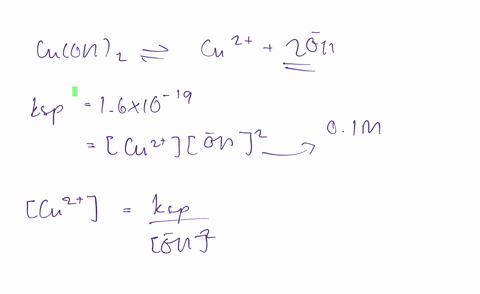 Cu(OH)₂ ⇌ Cu²⁺ + 2ŌH
ksp = 1.6×10⁻¹⁹
= [Cu²⁺][ŌH]² → 0.1M
[Cu²⁺] = ksp / [ŌH]²